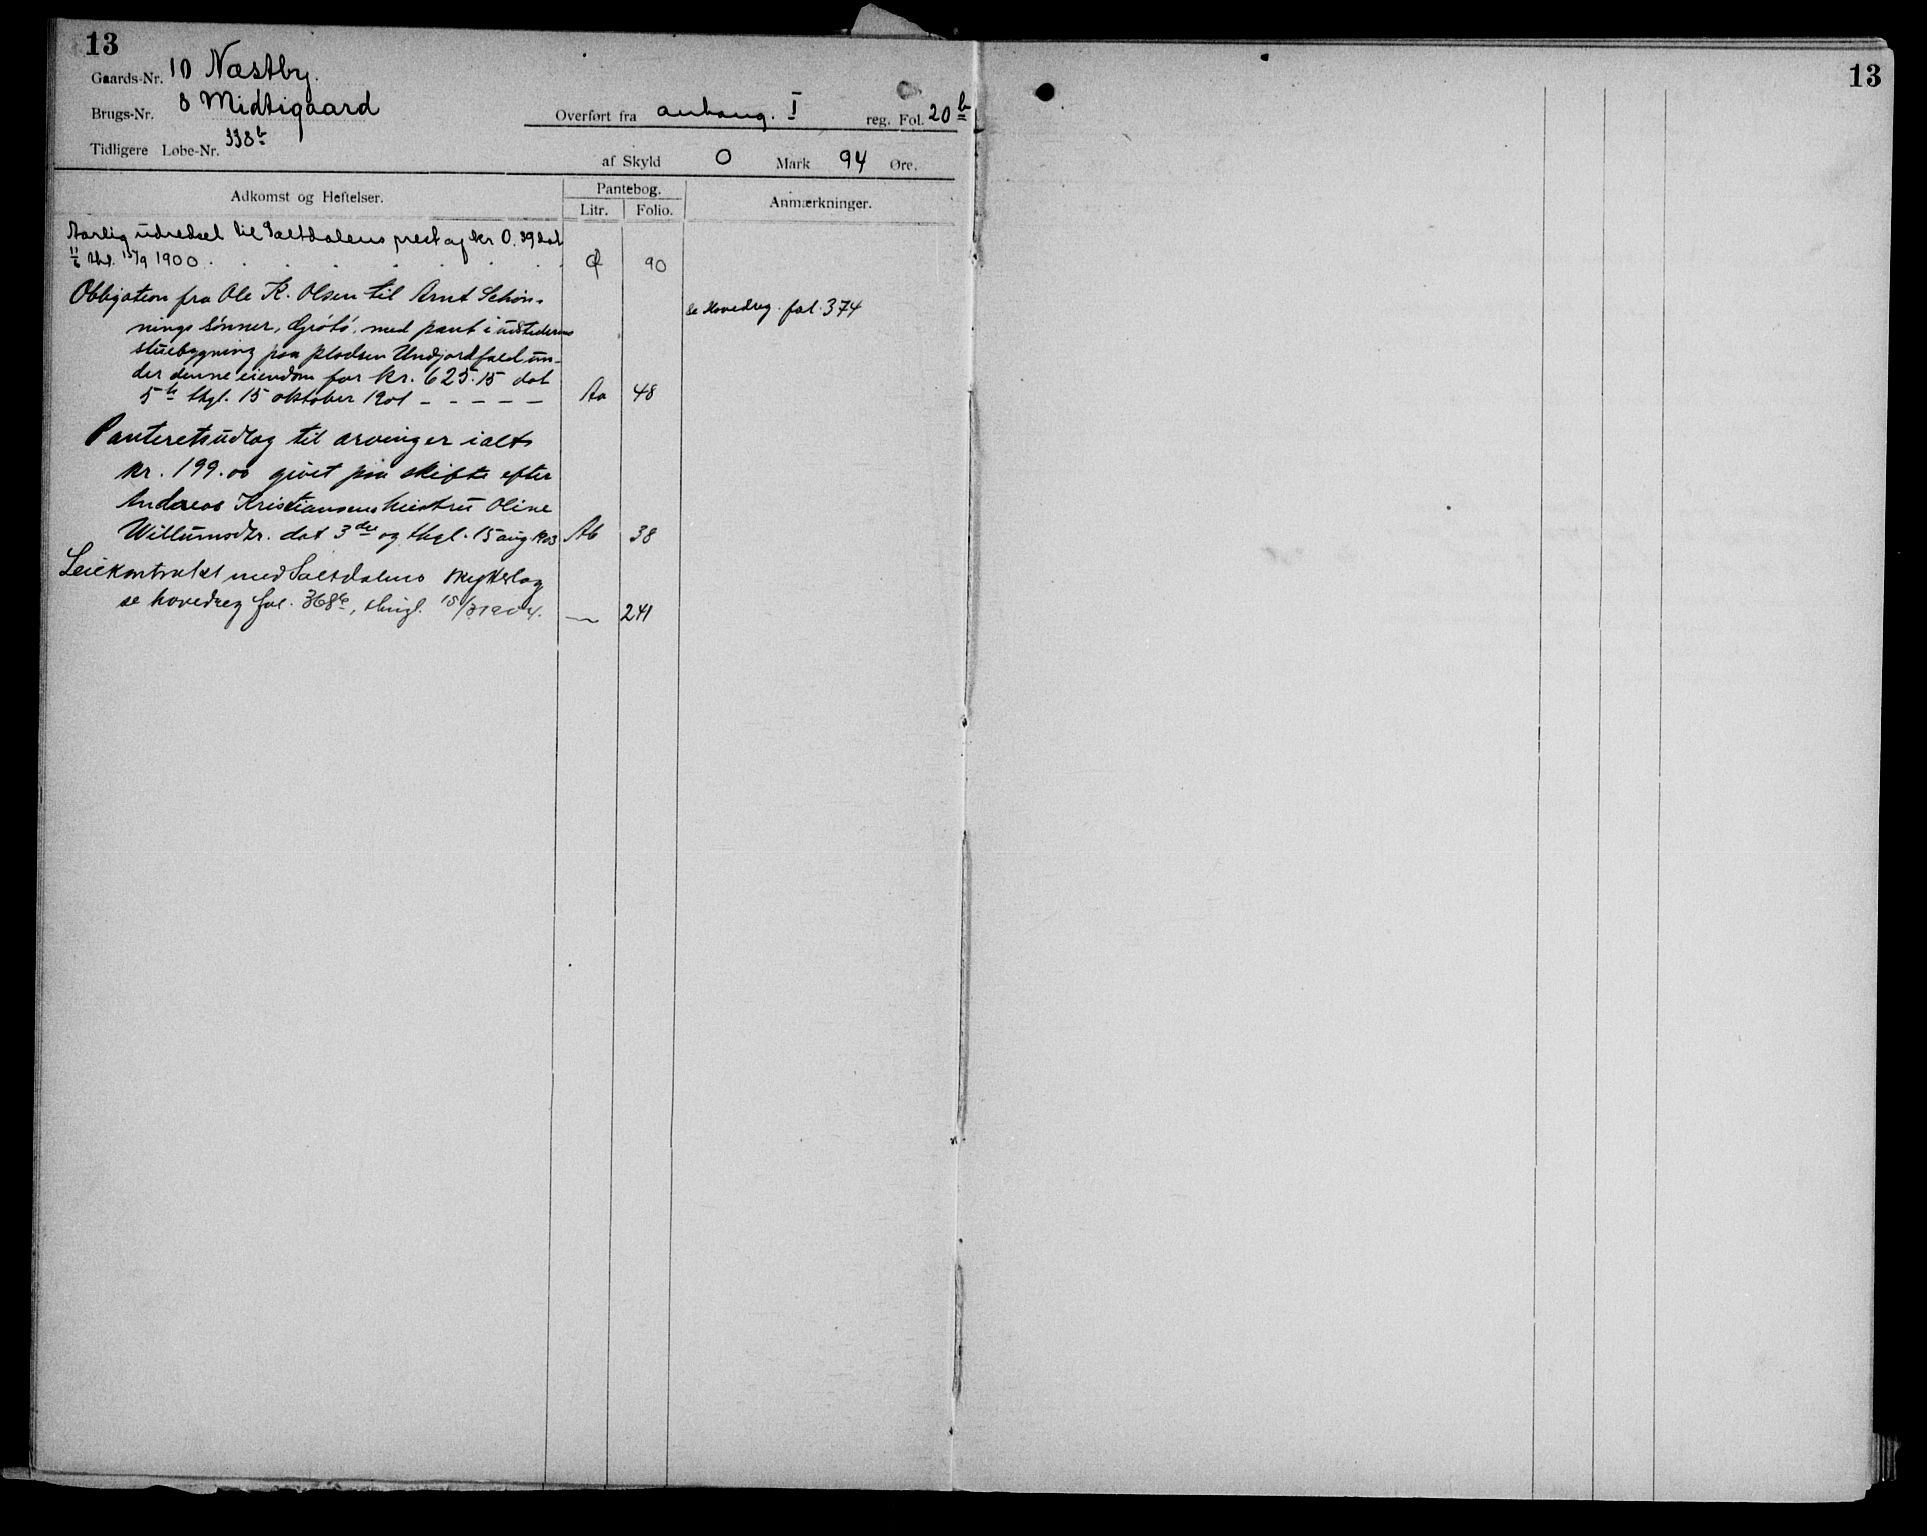 13
Gaards-Nr. 10 Næstby.
Brugs-Nr. 8 Midtigaard
Tidligere Løbe-Nr. 338b
Overført fra anhang. I reg. Fol. 20b
af Skyld 0 Mark 94 Øre.
Adkomst og Heftelser. Pantebog. Anmærkninger.
Litr. Folio.
Aarlig udredsel til Saltdalens prest af kr 0.39 dat
11/6 thl. 15/9 1900 . . . . . . . Q 90
Obligation fra Ole K. Olsen til Arnt Schøn- se Hovedreg. fol. 374
nings Sønner, Grøtø, med pant i udstederens
stuebygning paa pladsen Undjordfald un-
der denne eiendom for kr. 625.15 dat
5te thgl. 15 oktober 1901 - - - - - Aa 48
Panteretsudlæg til arvinger ialt
kr. 199.00 givet paa skifte efter
Andreas Kristiansens hustru Oline
Willumsdtr. dat 3die og thgl. 15 aug 1903 Ab 38
Leiekontrakt med Saltdalens
se hovedreg fol. 368b, thingl. 15/3 1904. — 241
13